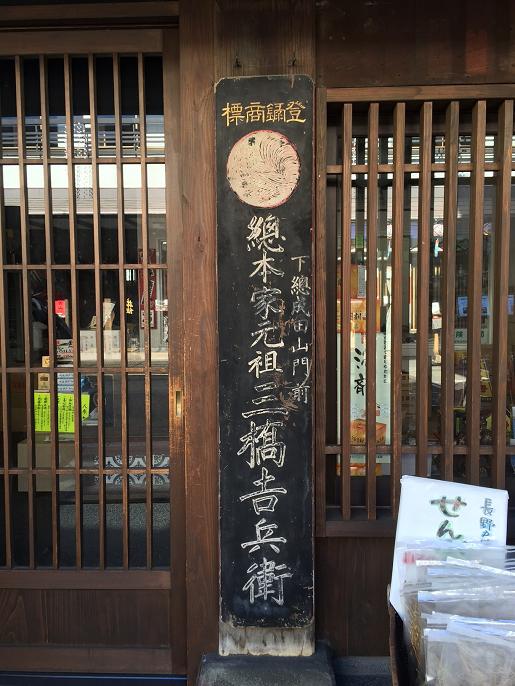 標商録登
下總成田山門前
總本家元祖三橋吉兵衛
長野
せん